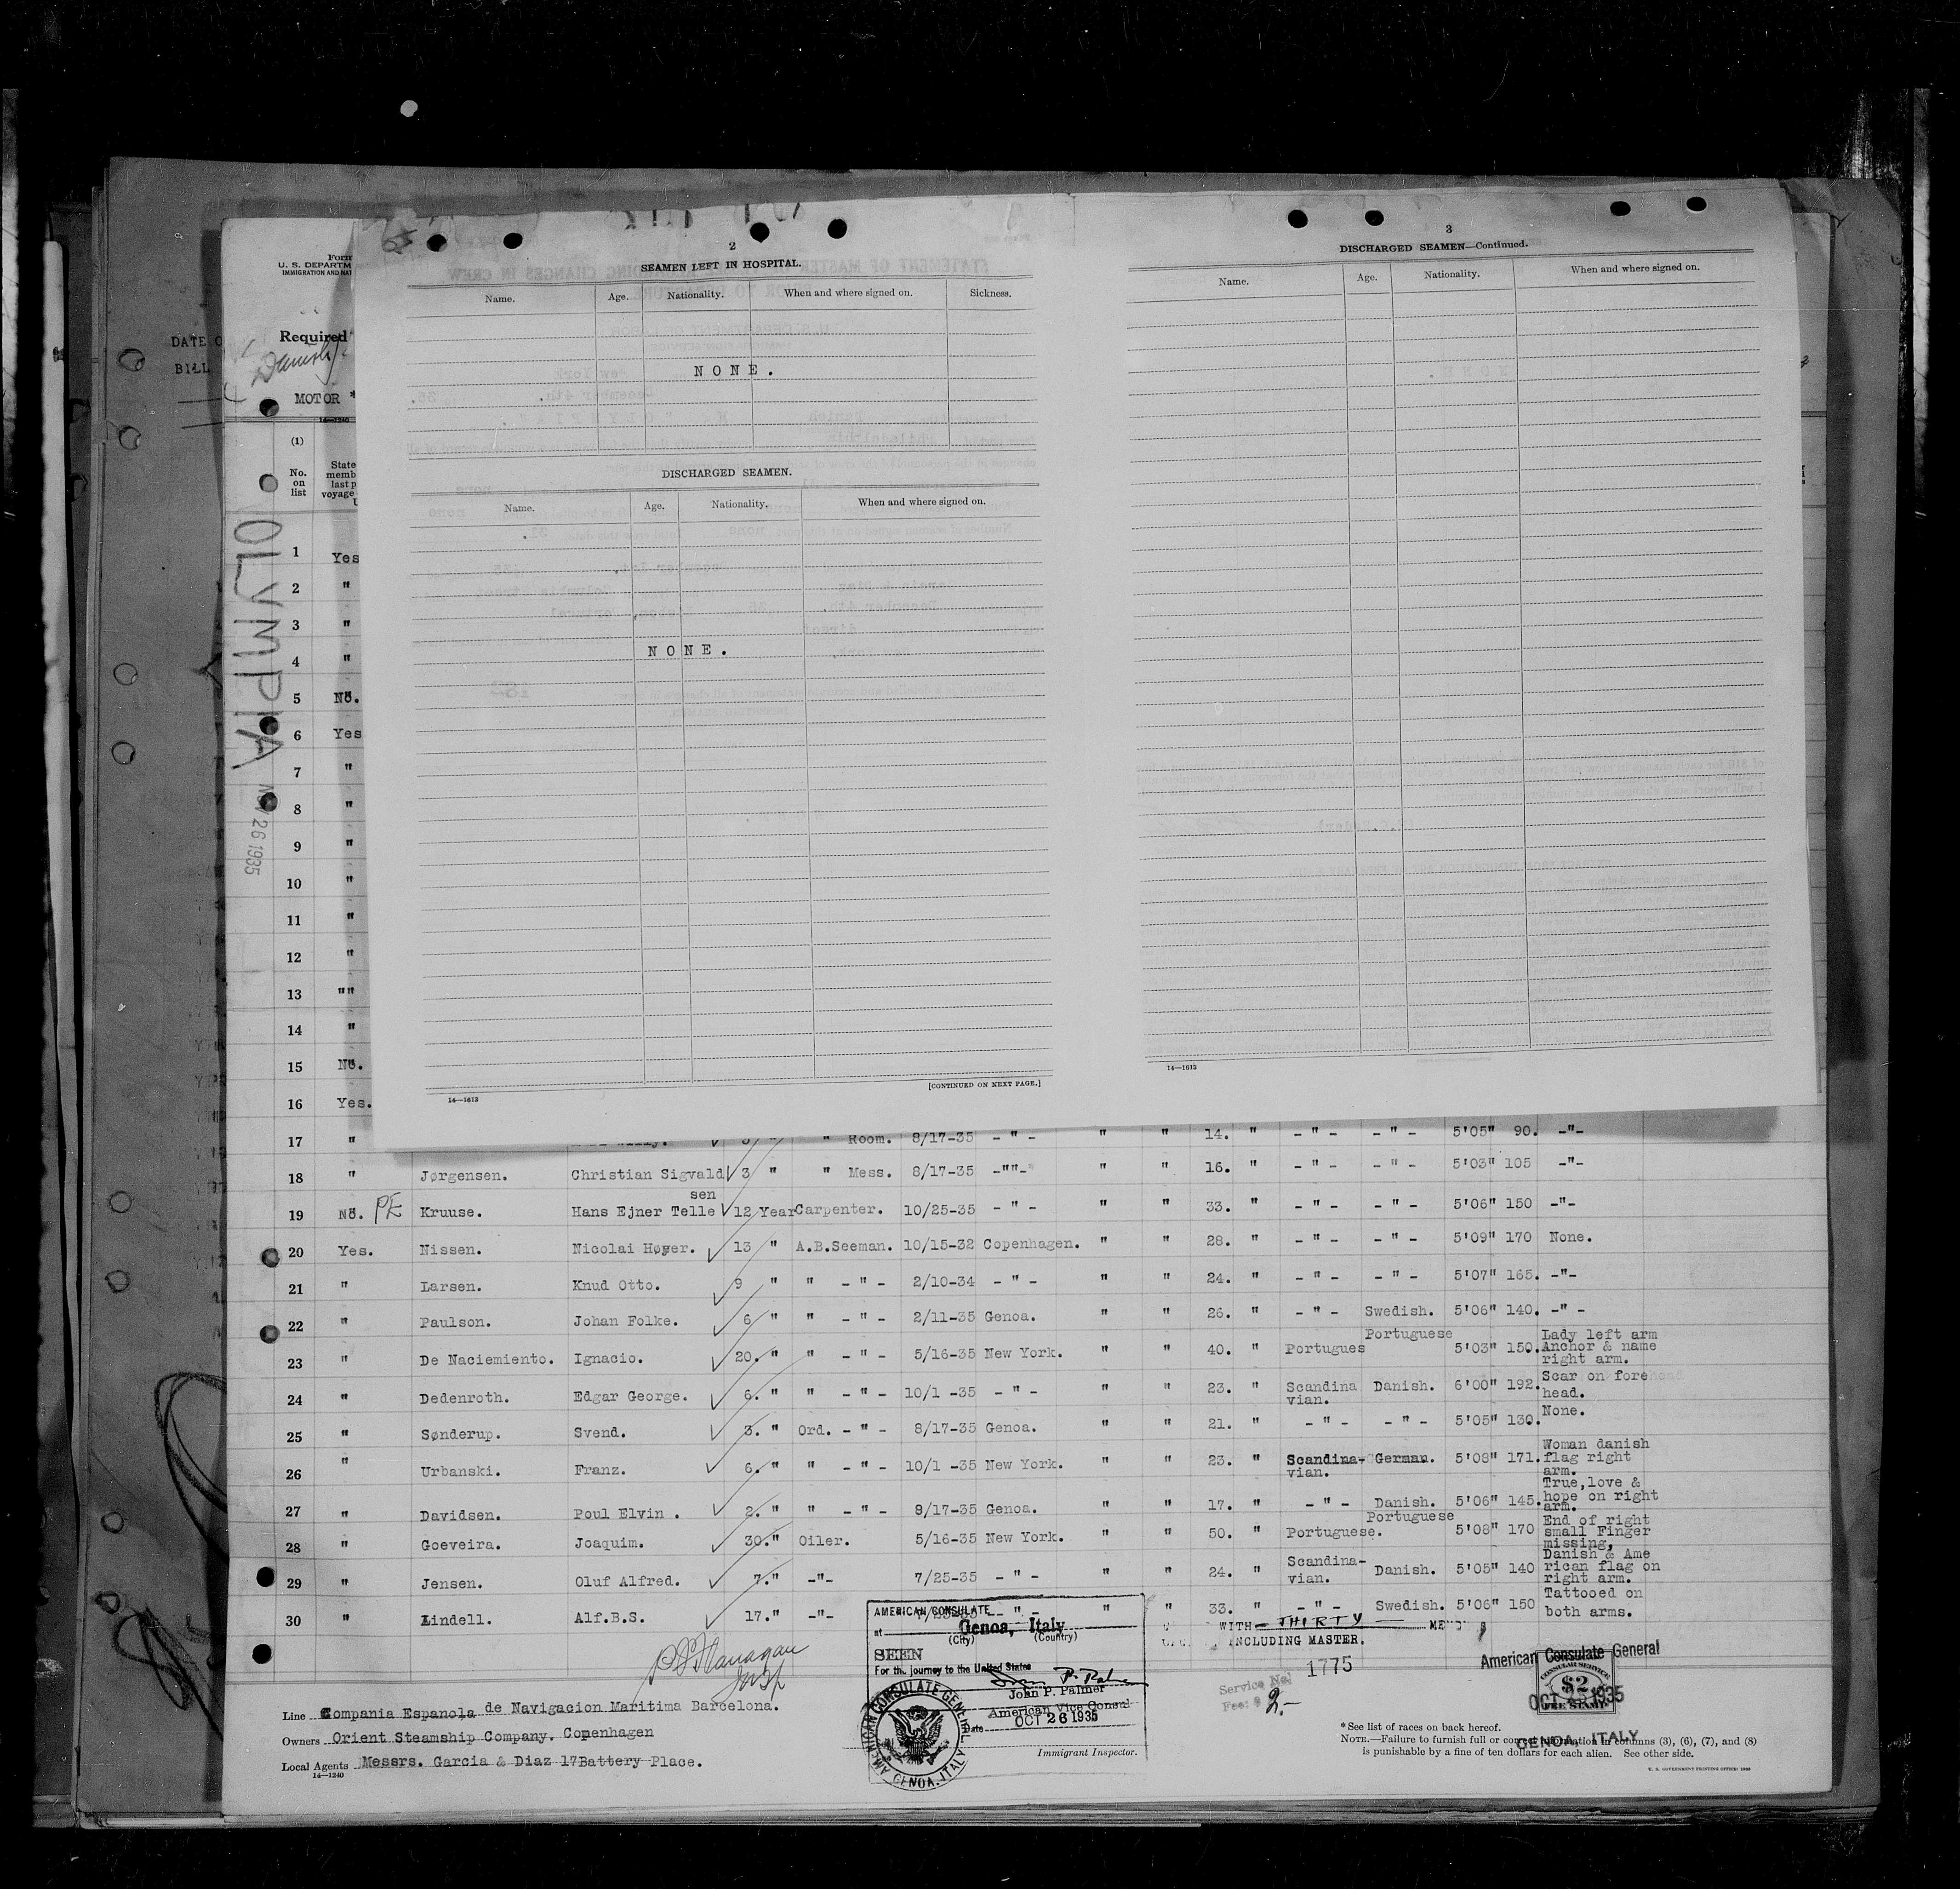 2
SEAMEN LEFT IN HOSPITAL.
Name. Age. Nationality. When and where signed on. Sickness.
NONE.
DISCHARGED SEAMEN.
Name. Age. Nationality. When and where signed on.
NONE.
[CONTINUED ON NEXT PAGE.]
14—1613
3
DISCHARGED SEAMEN—Continued.
Name. Age. Nationality. When and where signed on.
14—1613
DATE
BILL
Form
U. S. DEPARTM
IMMIGRATION AND NAT
Required
Danish
MOTOR
14—1240
(1)
No. on list
State
memb
last p
voyage
OLYMPIA
26 1935
1 Yes
2 "
3 "
4 "
5 No.
6 Yes
7 "
8 "
9 "
10 "
11 "
12 "
13 ""
14 "
15 No.
16 Yes.
17 " " Room. 8/17-35 - " - " " 14. " - " - - " - 5'05" 90. -"-
18 " Jørgensen. Christian Sigvald 3 " " Mess. 8/17-35 -""- " " 16. " - " - - " - 5'03" 105 -"-
sen
19 No. PE Kruuse. Hans Ejner Telle 12 Year Carpenter. 10/25-35 - " - " " 33. " - " - - " - 5'06" 150 -"-
20 Yes. Nissen. Nicolai Høyer. 13 " A.B.Seeman. 10/15-32 Copenhagen. " " 28. " - " - - " - 5'09" 170 None.
21 " Larsen. Knud Otto. 9 " " - " - 2/10-34 - " - " " 24. " - " - - " - 5'07" 165. -"-
22 " Paulson. Johan Folke. 6 " " - " - 2/11-35 Genoa. " " 26. " - " - Swedish. 5'06" 140. -" -
Portuguese Lady left arm
23 " De Naciemiento. Ignacio. 20. " " - " - 5/16-35 New York. " " 40. " Portugues 5'03" 150. Anchor & name
right arm.
24 " Dedenroth. Edgar George. 6. " " - " - 10/1 -35 - " - " " 23. " Scandina Danish. 6'00" 192. Scar on forehead
vian. head.
25 " Sønderup. Svend. 3. " Ord. - " - 8/17-35 Genoa. " " 21. " - " - - " - 5'05" 130. None.
Woman danish
26 " Urbanski. Franz. 6. " " - " - 10/1 -35 New York. " " 23. " Scandina- German. 5'08" 171. flag right
vian. arm.
True,love &
27 " Davidsen. Poul Elvin . 2. " " - " - 8/17-35 Genoa. " " 17. " - " - Danish. 5'06" 145. hope on right
arm.
Portuguese End of right
28 " Goeveira. Joaquim. 30." Oiler. 5/16-35 New York. " " 50. " Portuguese. 5'08" 170 small Finger
missing,
Scandina- Danish & Ame
29 " Jensen. Oluf Alfred. 7." -"- 7/25-35 - " - " " 24. " vian. Danish. 5'05" 140 rican flag on
right arm.
Tattooed on
30 " Lindell. Alf.B.S. 17." -"- " - " " 33. " - " - Swedish. 5'06" 150 both arms.
AMERICAN CONSULATE
at Genoa, Italy
(City) (Country)
SEEN
For the journey to the United States
John P. Palmer
American Vice Consul
Date OCT 26 1935
Immigrant Inspector.
AMERICAN CONSULATE GENERAL
GENOA, ITALY
WITH THIRTY
INCLUDING MASTER.
Service No. 1775
Fee: $ 2.-
American Consulate General
CONSULAR SERVICE
$2
FEE STAMP
OCT 26 1935
GENOA, ITALY
Line Compania Espanola de Navigacion Maritima Barcelona.
Owners Orient Steamship Company. Copenhagen
Local Agents Messrs. Garcia & Diaz 17 Battery Place.
14—1240
*See list of races on back hereof.
NOTE.—Failure to furnish full or correct information in columns (3), (6), (7), and (8)
is punishable by a fine of ten dollars for each alien. See other side.
U. S. GOVERNMENT PRINTING OFFICE: